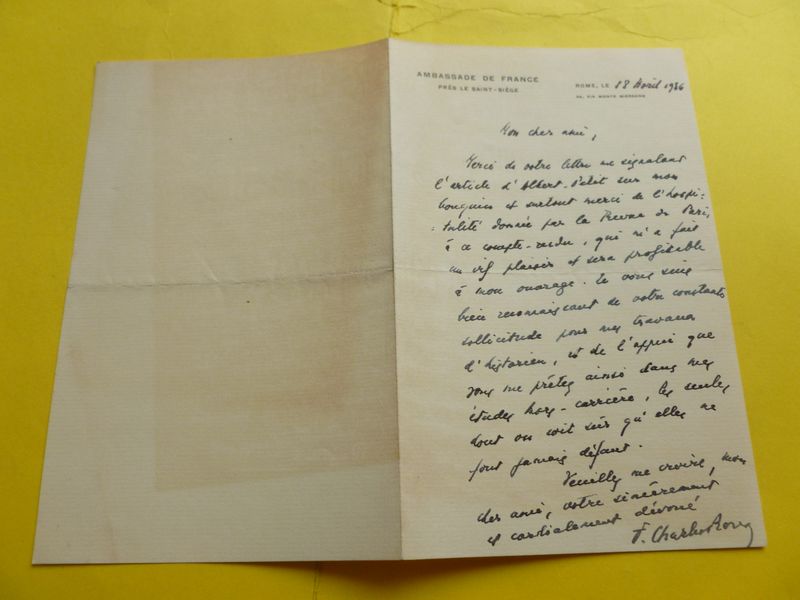 AMBASSADE DE FRANCE
PRÈS LE SAINT-SIÈGE
ROME, LE 18 Avril 1936
VIA MONTE
Mon cher ami,
Merci de votre lettre me signalant
l'article d'Albert-Petit sur mon
bouquin et surtout merci de l'hospi-
-talité donnée par la Revue de Paris,
à ce compte-rendu, qui m'a fait
un vif plaisir et sera profitable
à mon ouvrage. Je vous suis
bien reconnaissant de votre constante
sollicitude pour mes travaux
d'historien, et de l'appui que
vous me prêtez ainsi dans mes
études hors-carrière, les seules
dont on soit sûr qu'elles ne
font jamais défaut.
Veuillez me croire, mon
cher ami, votre sincèrement
et cordialement dévoué
F. Charles-Roux